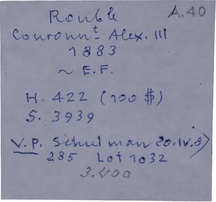 Rouble A.40
Couronnt Alex. III
1883
~ E.F.
H. 422 (100 $)
S. 3939
V.P. Schulman 20.IV.8
285 Lot 1032
3.400